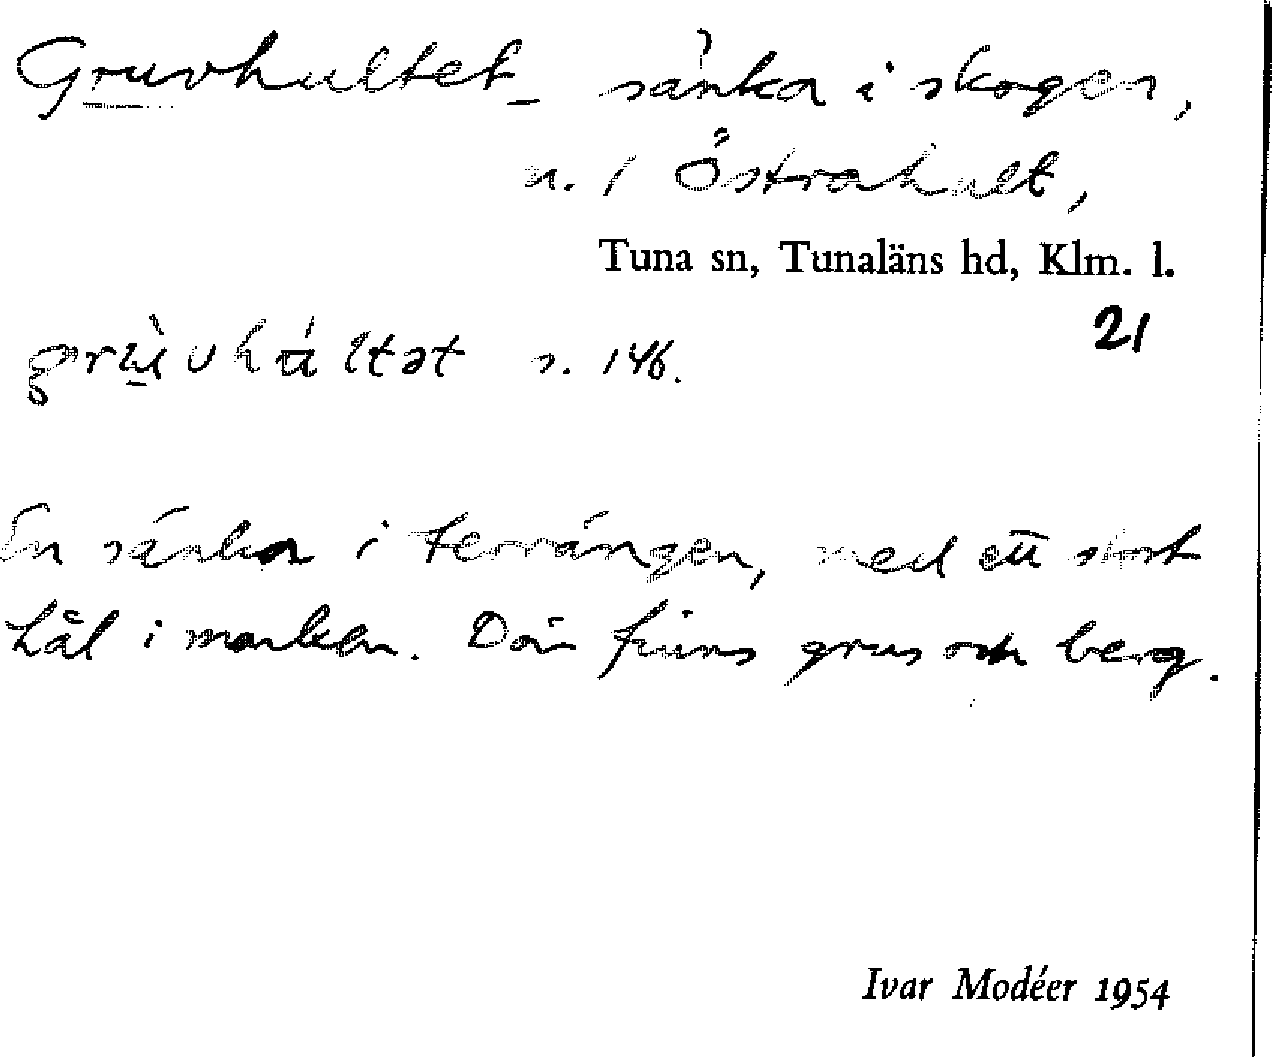 Gruvhultet sänka i skogen,
n. 1 Östrahult,
Tuna sn, Tunaläns hd, Klm. l.
21
s. 146.
En sänka i terrängen, med ett stort
hål i marken. Där finns grus och berg.
Ivar Modéer 1954